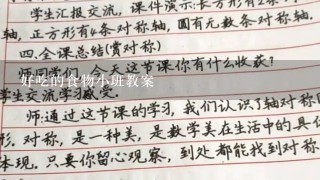 学生汇报交流，课件演示：长方形有2条
轴，正方形有4条对称轴，圆有无数条对称轴
四.全课总结(赏对称)
今天这节课你有什么收获？
好吃的食物小班教案
学生交流学习
师：通过这节课的学习，我们认识了轴对称
形.对称，是一种美，是数学美在生活中的具
体现.只要你留心观察，到处都能找到对称